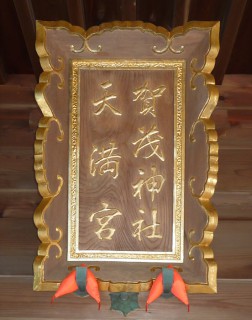 賀茂神社
天満宮